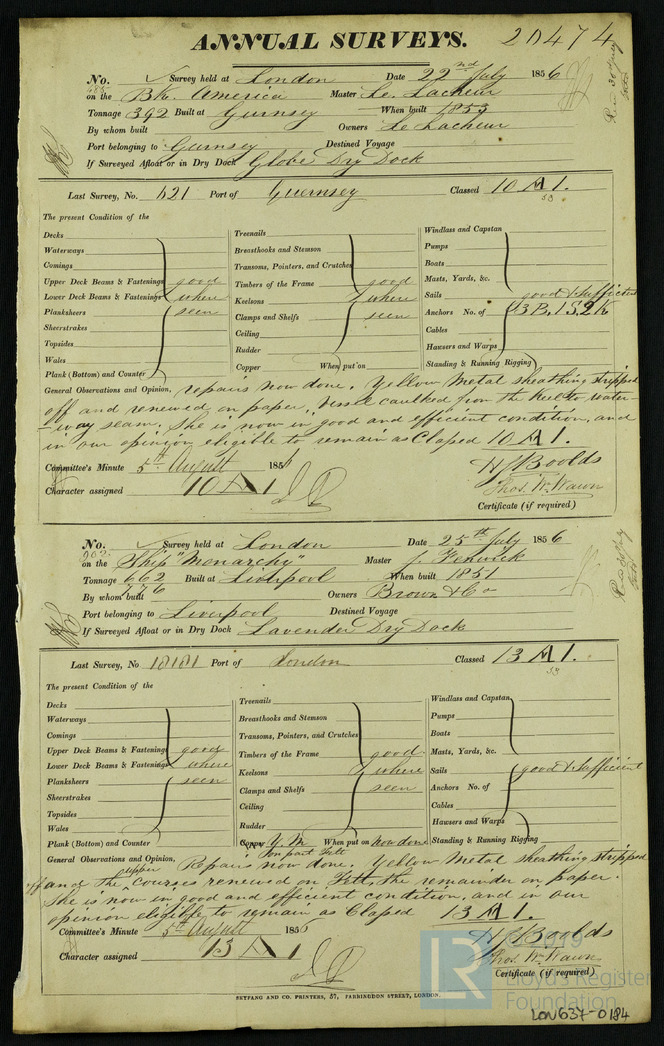 ANNUAL SURVEYS. 20474
No. Survey held at London Date 22nd July 1856
on the Bk. America Master Le Lacheur
Tonnage 392 Built at Gurnsey When built 1853
By whom built Owners Le Lacheur
Port belonging to Gurnsey Destined Voyage
If Surveyed Afloat or in Dry Dock Globe Dry Dock
Last Survey, No. 621 Port of Guernsey Classed 10 A 1.
53
The present Condition of the
Decks
Waterways
Comings
Upper Deck Beams & Fastenings good
Lower Deck Beams & Fastenings where
Planksheers seen
Sheerstrakes
Topsides
Wales
Plank (Bottom) and Counter
Treenails
Breasthooks and Stemson
Transoms, Pointers, and Crutches
Timbers of the Frame good
Keelsons where
Clamps and Shelfs seen
Ceiling
Rudder
Copper When put on
Windlass and Capstan
Pumps
Boats
Masts, Yards, &c.
Sails good & sufficient
Anchors No. of 3 B. 1 S. 2 K
Cables
Hawsers and Warps
Standing & Running Rigging
General Observations and Opinion, repairs now done. Yellow Metal sheathing stripped
off and renewed on paper, Vessel caulked from the keel to water-
-way seam. She is now in good and efficient condition, and
in our opinion eligible to remain as Classed 10 A 1.
Committee's Minute 5th August 1856
H J Boolds
Character assigned 10 A 1
Thos. Wm. Wawn
Certificate (if required)
No. Survey held at London Date 25th July 1856
902
on the Ship "Monarchy" Master J Fenwick
Tonnage 662 Built at Liverpool When built 1851
776
By whom built Owners Brown & Co
Port belonging to Liverpool Destined Voyage
If Surveyed Afloat or in Dry Dock Lavender Dry Dock
Last Survey, No 18181 Port of London Classed 13 A 1.
53
The present Condition of the
Decks
Waterways
Comings
Upper Deck Beams & Fastenings good
Lower Deck Beams & Fastenings where
Planksheers seen
Sheerstrakes
Topsides
Wales
Plank (Bottom) and Counter
Treenails
Breasthooks and Stemson
Transoms, Pointers, and Crutches
Timbers of the Frame good
Keelsons where
Clamps and Shelfs seen
Ceiling
Rudder
Copper Y. M. When put on now done
on part Felt
Windlass and Capstan
Pumps
Boats
Masts, Yards, &c.
Sails good & sufficient
Anchors No. of
Cables
Hawsers and Warps
Standing & Running Rigging
General Observations and Opinion, Repairs now done. Yellow Metal sheathing stripped
off and the upper courses renewed on Felt, the remainder on paper.
She is now in good and efficient condition, and in our
opinion eligible to remain as Classed 13 A 1.
Committee's Minute 5th August 1856
H J Boolds
Character assigned 13 A 1
Thos. Wm. Wawn
Certificate (if required)
SEYFANG AND CO. PRINTERS, 57, FARRINGDON STREET, LONDON.
LR
2019
Lloyd's Register
Foundation
LON637-0184